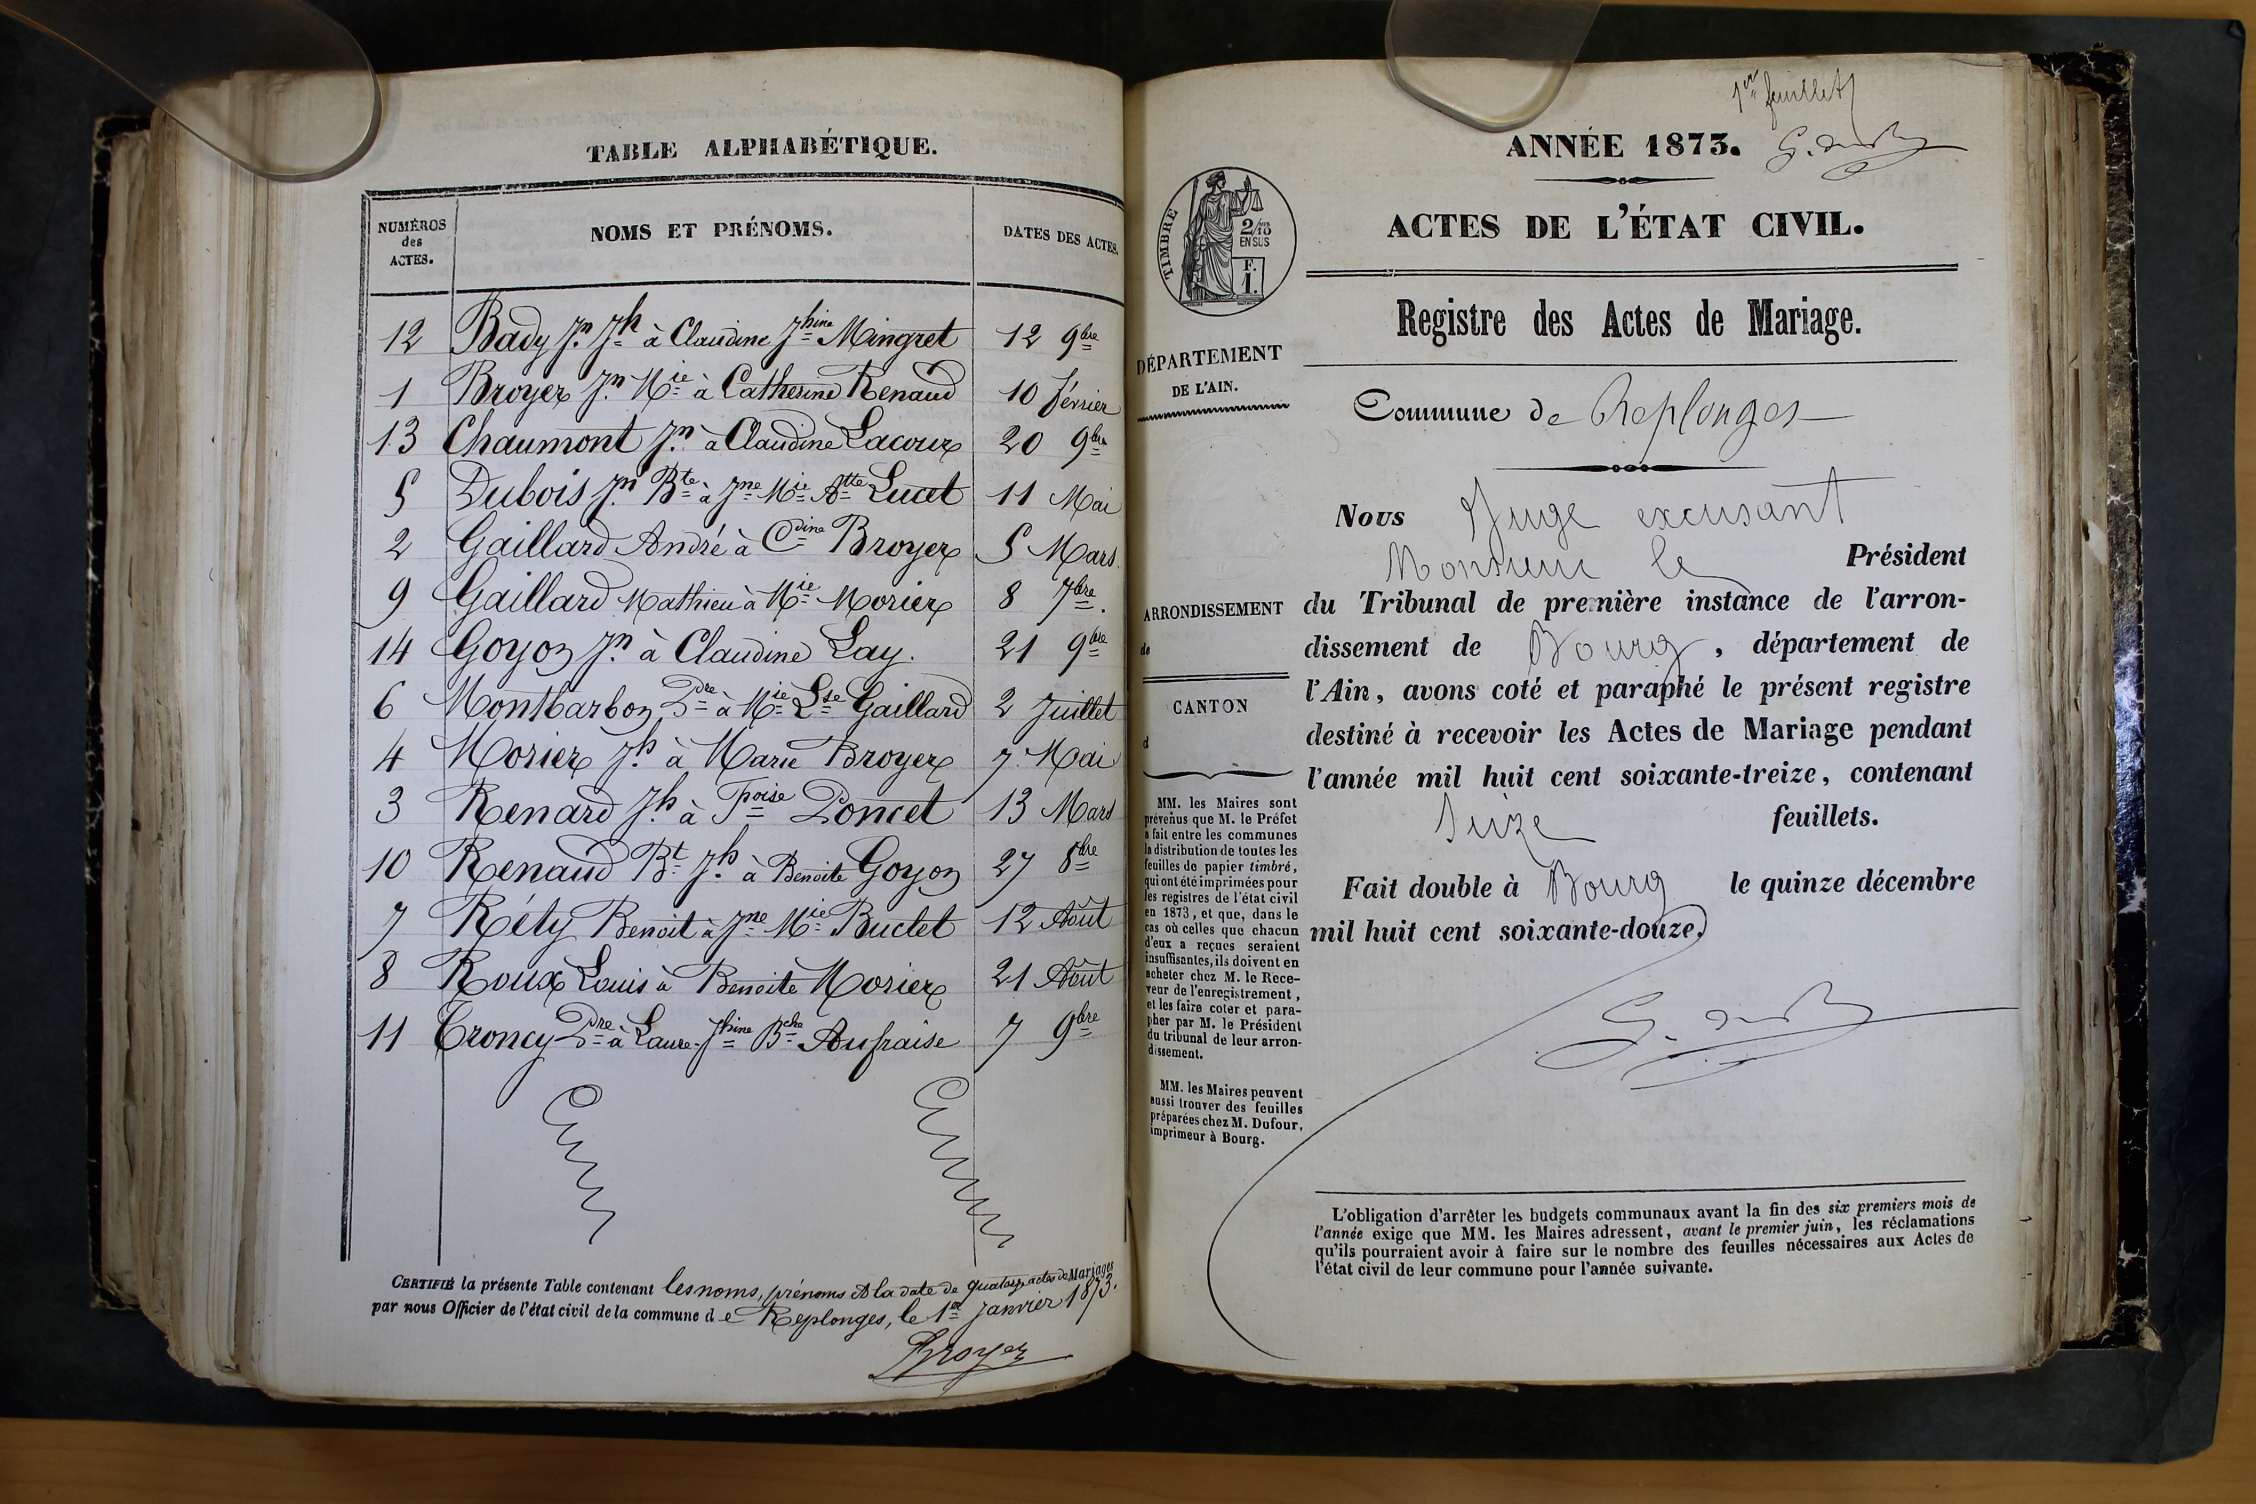 TABLE ALPHABÉTIQUE.
NUMÉROS des ACTES. NOMS ET PRÉNOMS. DATES DES ACTES.
12 Bady Jn Jh à Claudine Jhine Mingret 12 9bre
1 Broyer Jn Mie à Catherine Renaud 10 février
13 Chaumont Jn à Claudine Lacour 20 9bre
5 Dubois Jn Bte à Jne Mie Atte Lucet 11 Mai
2 Gaillard André à Cdine Broyer 5 Mars.
9 Gaillard Mathieu à Mie Morier 8 7bre.
14 Goyon Jn à Claudine Lay. 21 9bre
6 Montbarbon Pre à Mie Lse Gaillard 2 Juillet
4 Morier Jh à Marie Broyer 7 Mai
3 Renard Jh à Foise Poncet 13 Mars
10 Renaud Bt Jh à Benoite Goyon 27 8bre
7 Réty Benoit à Jne Mie Buclet 12 Août
8 Roux Louis à Benoite Morier 21 Août
11 Troncy Pre à Laure Jhine Bche Aufraise 7 9bre
CERTIFIÉ la présente Table contenant les noms, prénoms et la date de quatorze actes de Mariages
par nous Officier de l'état civil de la commune de Replonges, le 1er Janvier 1873.
Broyer
1er feuillet
ANNÉE 1873.
ACTES DE L'ÉTAT CIVIL.
TIMBRE
2/10 EN SUS
F. 1.
Registre des Actes de Mariage.
DÉPARTEMENT
DE L'AIN.
Commune de Replonges
ARRONDISSEMENT
de
CANTON
d
MM. les Maires sont
prévenus que M. le Préfet
a fait entre les communes
la distribution de toutes les
feuilles de papier timbré,
qui ont été imprimées pour
les registres de l'état civil
en 1873, et que, dans le
cas où celles que chacun
d'eux a reçues seraient
insuffisantes, ils doivent en
acheter chez M. le Rece-
veur de l'enregistrement,
et les faire coter et para-
pher par M. le Président
du tribunal de leur arron-
dissement.
MM. les Maires peuvent
aussi trouver des feuilles
préparées chez M. Dufour,
imprimeur à Bourg.
Nous Juge excusant
Monsieur le Président
du Tribunal de première instance de l'arron-
dissement de Bourg, département de
l'Ain, avons coté et paraphé le présent registre
destiné à recevoir les Actes de Mariage pendant
l'année mil huit cent soixante-treize, contenant
seize feuillets.
Fait double à Bourg le quinze décembre
mil huit cent soixante-douze.
L'obligation d'arrêter les budgets communaux avant la fin des six premiers mois de
l'année exige que MM. les Maires adressent, avant le premier juin, les réclamations
qu'ils pourraient avoir à faire sur le nombre des feuilles nécessaires aux Actes de
l'état civil de leur commune pour l'année suivante.